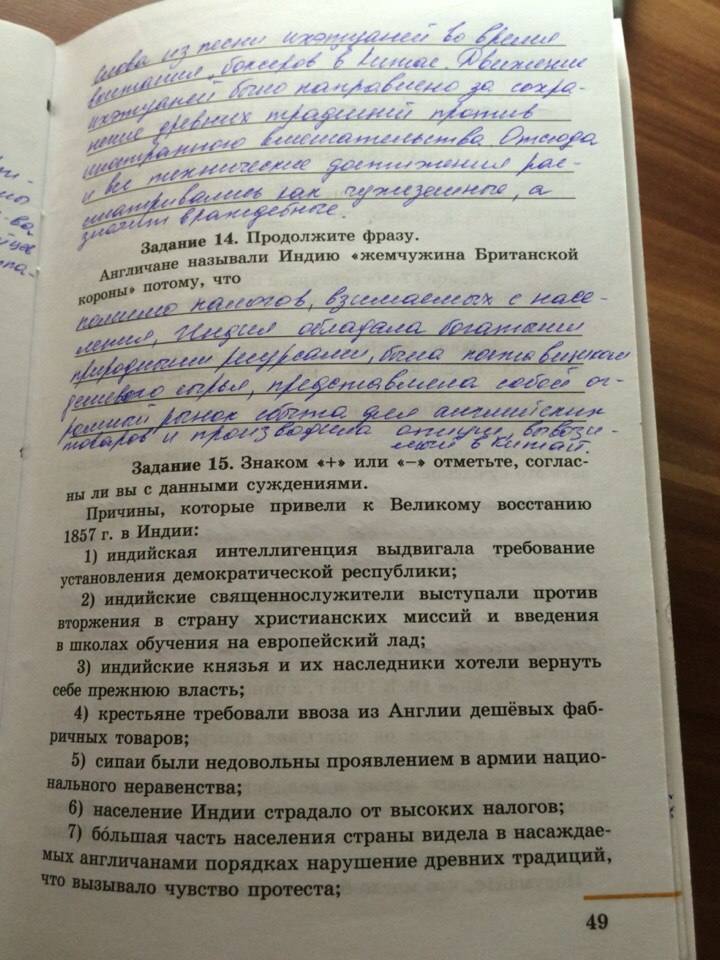 слова из песни ихэтуаней во время
восстания „боксеров" в Китае. Движение
ихэтуаней было направлено за сохра-
нение древних традиций против
иностранного вмешательства. Отсюда
и все технические достижения рас-
сматривались как чужеземные, а
значит враждебные.
Задание 14. Продолжите фразу.
Англичане называли Индию «жемчужина Британской
короны» потому, что
помимо налогов, взимаемых с насе-
ления, Индия обладала богатыми
природными ресурсами, была поставщиком
дешевого сырья, представляла собой ог-
ромный рынок сбыта для английских
товаров и производила опиум, вывози-
мый в Китай.
Задание 15. Знаком «+» или «–» отметьте, соглас-
ны ли вы с данными суждениями.
Причины, которые привели к Великому восстанию
1857 г. в Индии:
1) индийская интеллигенция выдвигала требование
установления демократической республики;
2) индийские священнослужители выступали против
вторжения в страну христианских миссий и введения
в школах обучения на европейский лад;
3) индийские князья и их наследники хотели вернуть
себе прежнюю власть;
4) крестьяне требовали ввоза из Англии дешёвых фаб-
ричных товаров;
5) сипаи были недовольны проявлением в армии нацио-
нального неравенства;
6) население Индии страдало от высоких налогов;
7) бо́льшая часть населения страны видела в насаждае-
мых англичанами порядках нарушение древних традиций,
что вызывало чувство протеста;
49